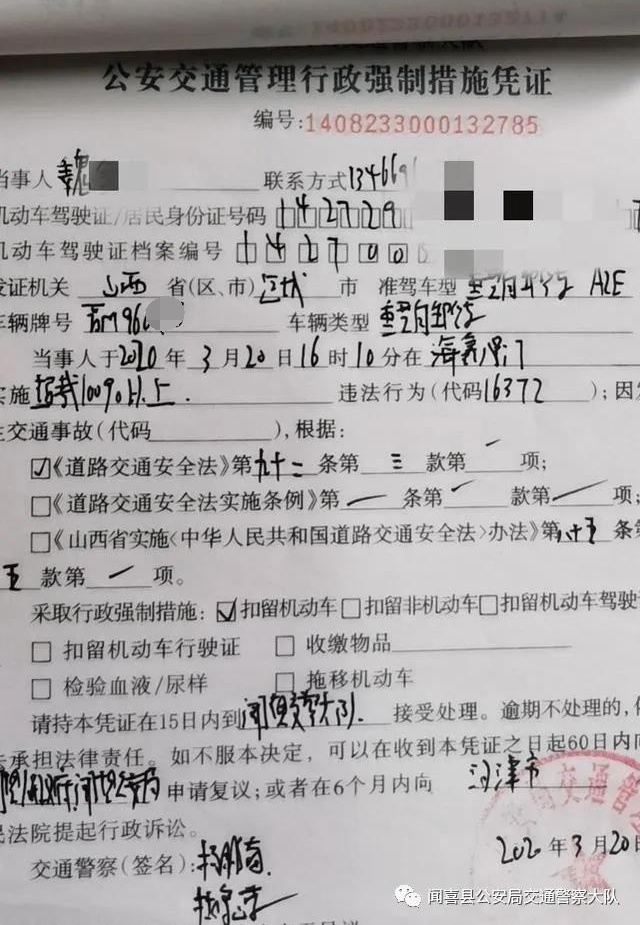 1408233000132714
公安交通管理行政强制措施凭证
编号:1408233000132785
当事人 魏 联系方式13466
机动车驾驶证/居民身份证号码 142729
机动车驾驶证档案编号 142700
发证机关 山西 省(区、市) 运城 市 准驾车型 重型自卸货 A2E
车辆牌号 晋M960 车辆类型 重型自卸货
当事人于2020年3月20日16时10分在海鑫
实施超载100%以上. 违法行为(代码16372);因发
生交通事故(代码),根据:
☑《道路交通安全法》第九十二条第三款第一项;
□《道路交通安全法实施条例》第一条第一款第一项;
□《山西省实施〈中华人民共和国道路交通安全法〉办法》第八十五条第
五款第一项。
采取行政强制措施:☑扣留机动车□扣留非机动车□扣留机动车驾驶证
□ 扣留机动车行驶证 □ 收缴物品
□ 检验血液/尿样 □ 拖移机动车
请持本凭证在15日内到闻喜交警大队.接受处理。逾期不处理的,依
法承担法律责任。如不服本决定,可以在收到本凭证之日起60日内向
申请复议;或者在6个月内向 河津市
民法院提起行政诉讼。
2020年3月20日
交通警察(签名):
闻喜县公安局交通警察大队